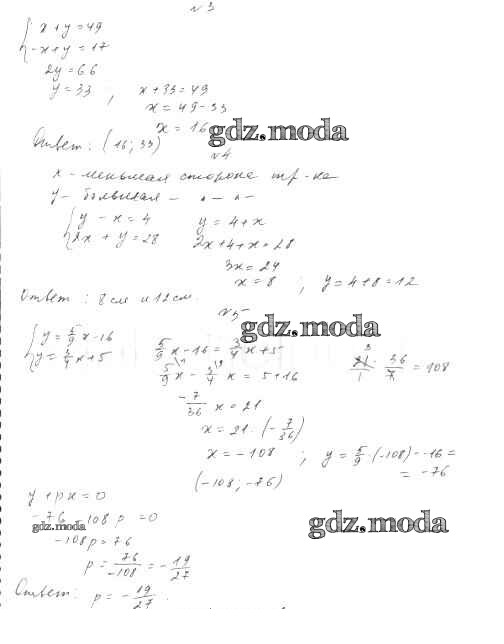 №3
{ x + y = 49
-x + y = 17
2y = 66
y = 33 ; x + 33 = 49
x = 49 - 33
x = 16
Ответ: (16; 33)
gdz.moda
№4
x - меньшая сторона тр-ка
y - большая - " - " -
{ y - x = 4 y = 4 + x
2x + y = 28 2x + 4 + x = 28
3x = 24
x = 8 ; y = 4 + 8 = 12
Ответ: 8 см и 12 см.
№5
gdz.moda
{ y = 5/9 x - 16 5/9 x - 16 = 3/4 x + 5
y = 3/4 x + 5 5/9 x - 3/4 x = 5 + 16 21/1 · 36/7 = 108
-7/36 x = 21
x = 21 · (-7/36)
x = -108 ; y = 5/9 · (-108) - 16 =
= -76
(-108; -76)
y + px = 0
-76 - 108p = 0
gdz.moda
-108p = 76
gdz.moda
p = 76/-108 = -19/27
Ответ: p = -19/27.